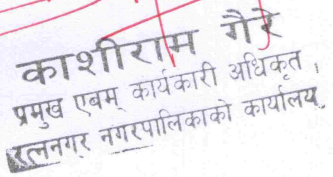 काशीराम गैरे
प्रमुख एबम् कार्यकारी अधिकृत ,
रत्ननगर नगरपालिकाको कार्यालय,